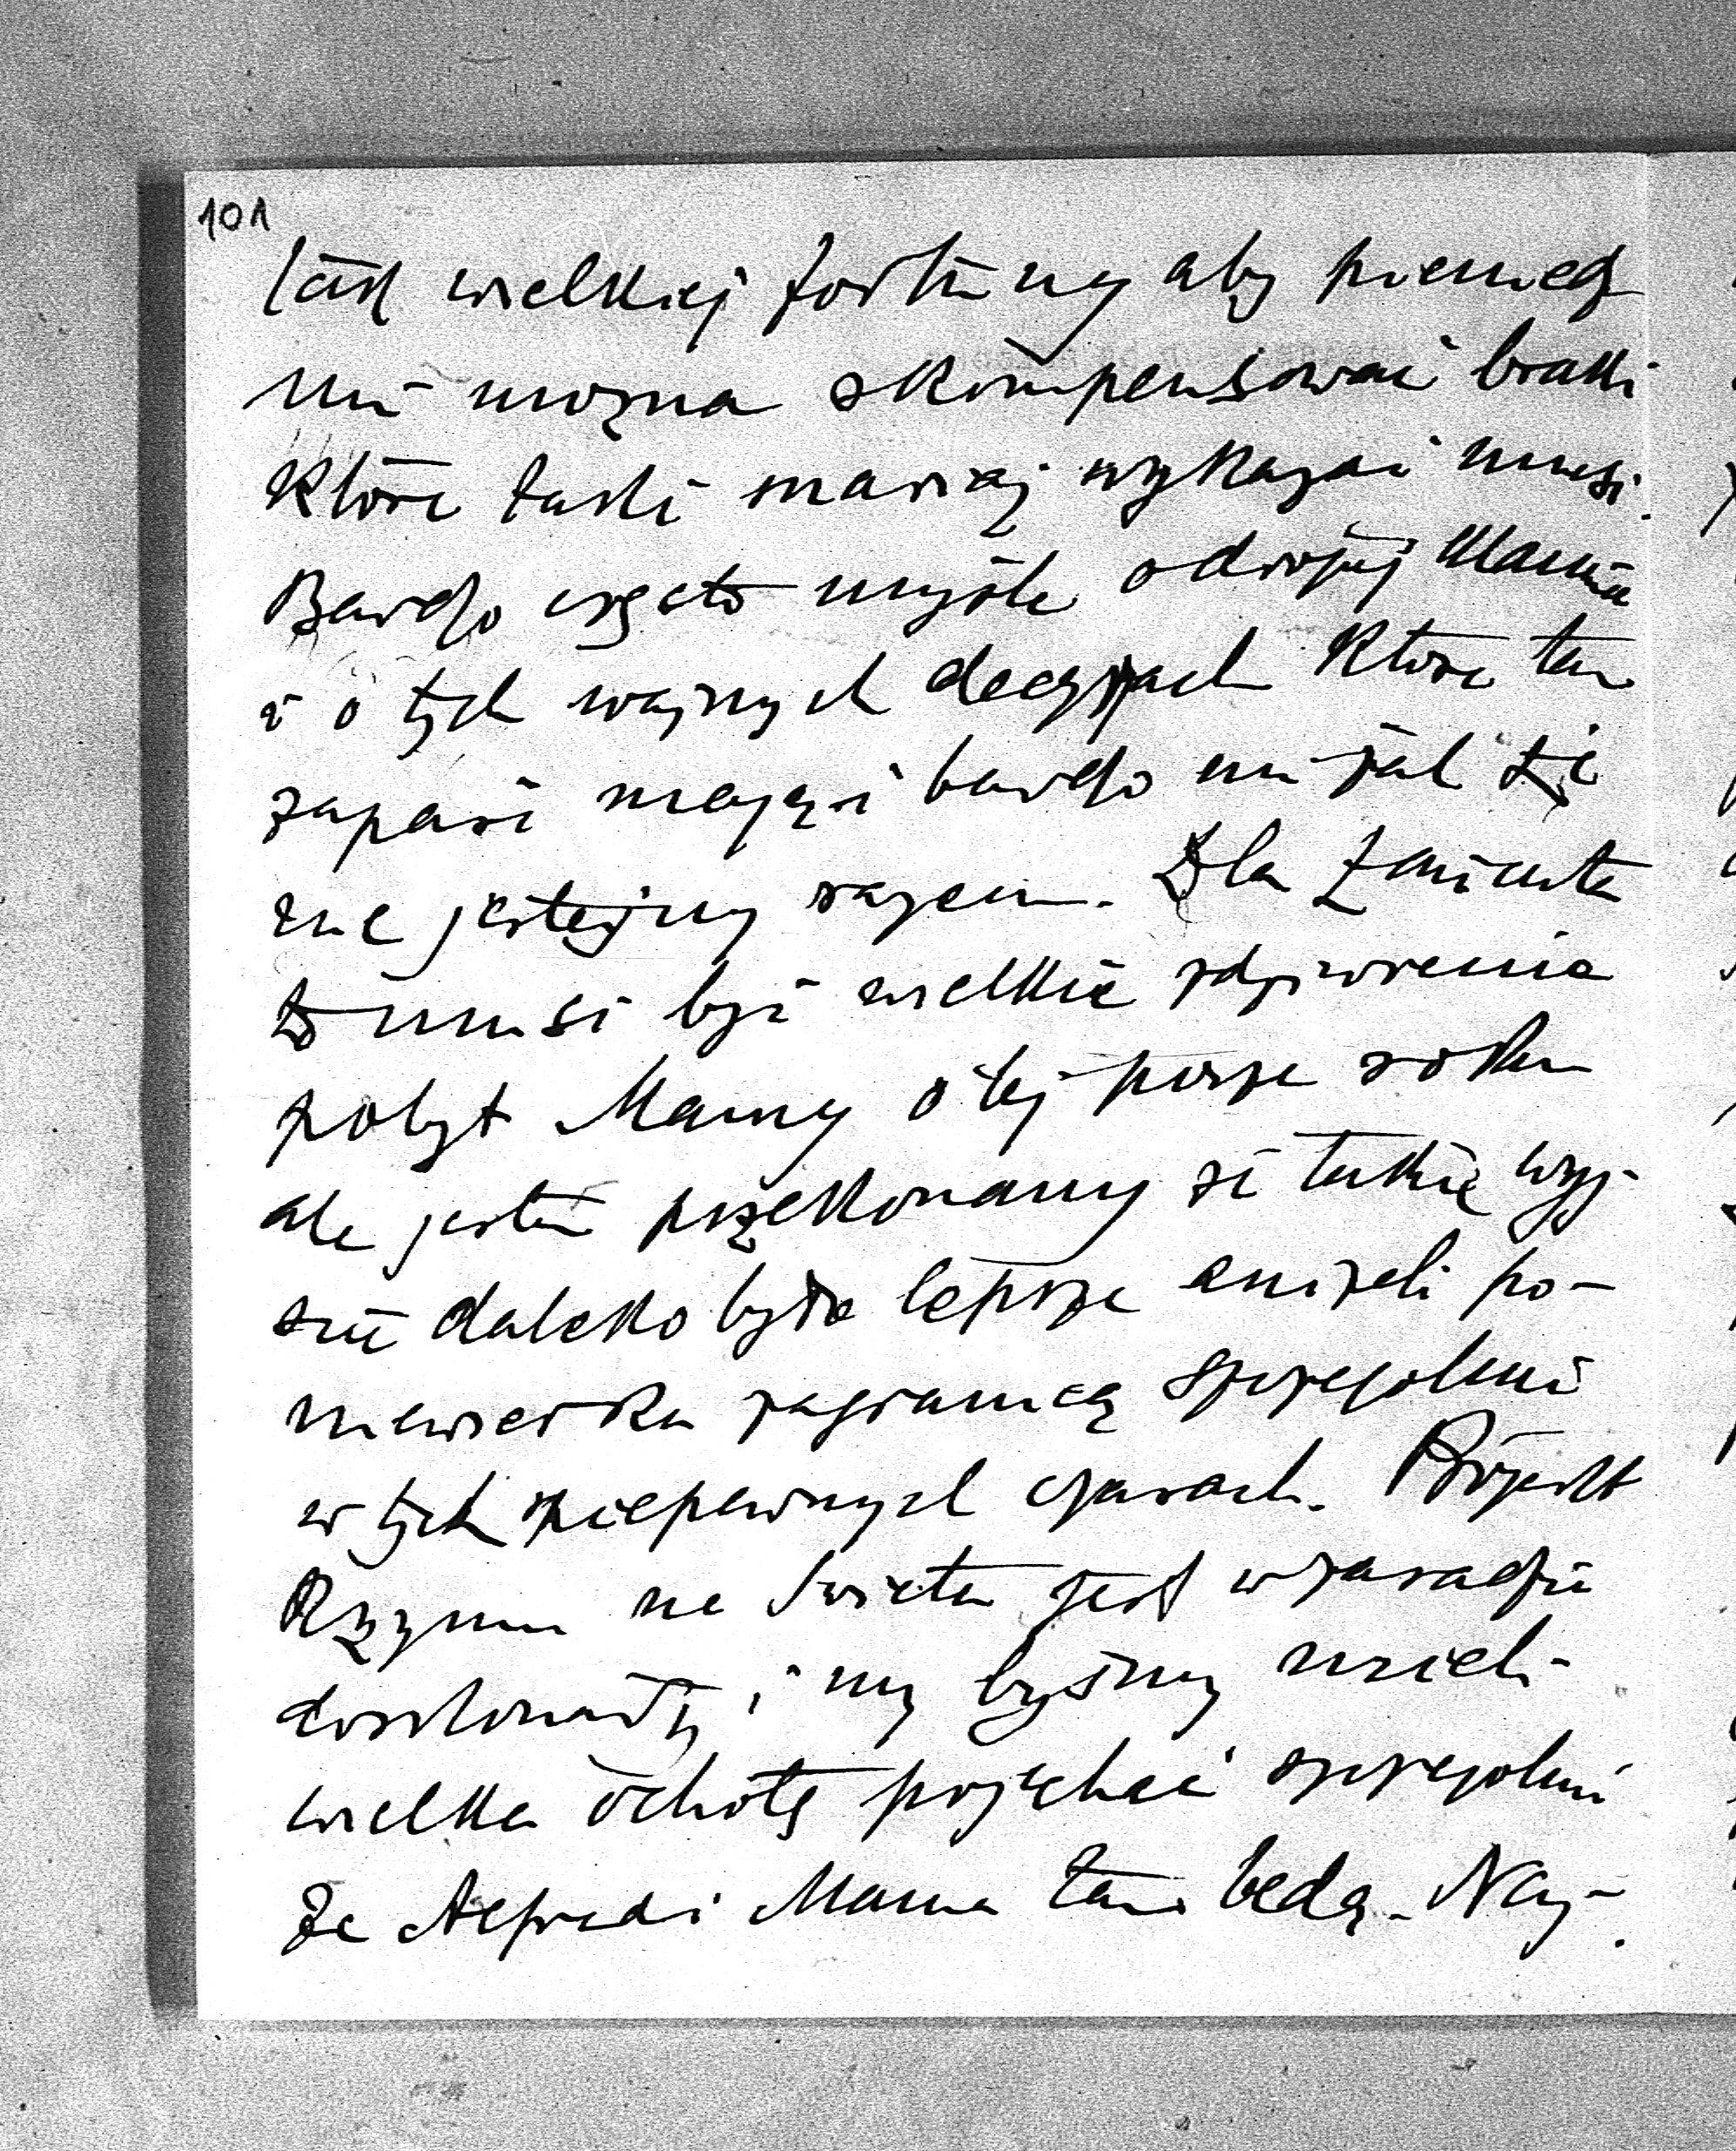 101
tak wielkiej fortuny aby pieniędz
mi można skompensować braki
które taki mariaż wykazać musi.
Bardzo często myślę o drogiej Mamie
i o tych ważnych decyzjach które tam
zapaść mają i bardzo mi żal że
nie jesteśmy razem. Dla Łańcuta
to musi być wielkie zdziwienie
pobyt Mamy o tej porze roku
ale jestem przekonany że takie wyj-
ście daleko było lepsze aniżeli po-
niewierka zagranicą szczególnie
w tych niepewnych czasach. Projekt
Rzymu na Święta jest w zasadzie
doskonały i my byśmy mieli
wielką ochotę pojechać szczególnie
że Alfred i Mama tam będą. Naj-